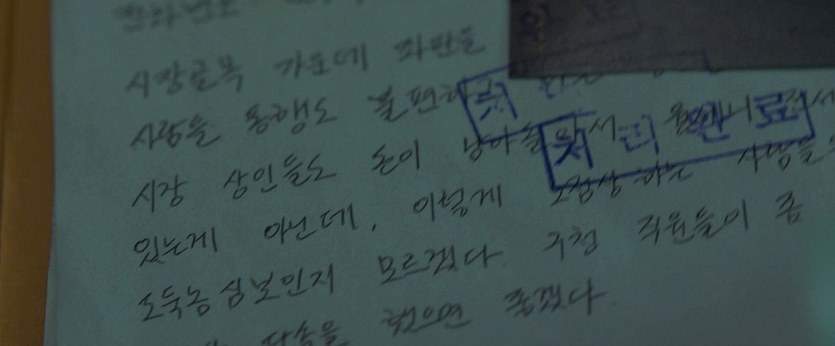 시장골목 가운데 좌판을
사람들 통행도 불편하
시장 상인들도 돈이 남아돌아서 전세
있는게 아닌데, 이렇게 노점상하는 사람들
도둑놈 심보인지 모르겠다 구청 직원들이 좀
단속을 했으면 좋겠다
처리완료